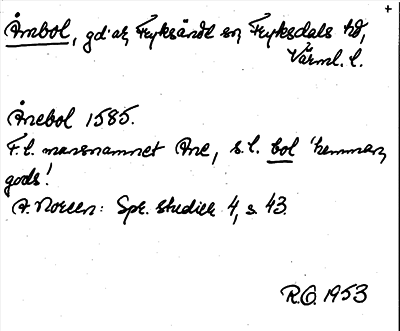 +
Åmbol, gd ar, Fryksände sn, Fryksdals hd,
Värml. l.
Ånebol 1585.
F.l. mansnamnet Ane, s.l. bol 'hemman,
gods'
A. Noreen: Spr. studier 4, s. 43.
R.O. 1953